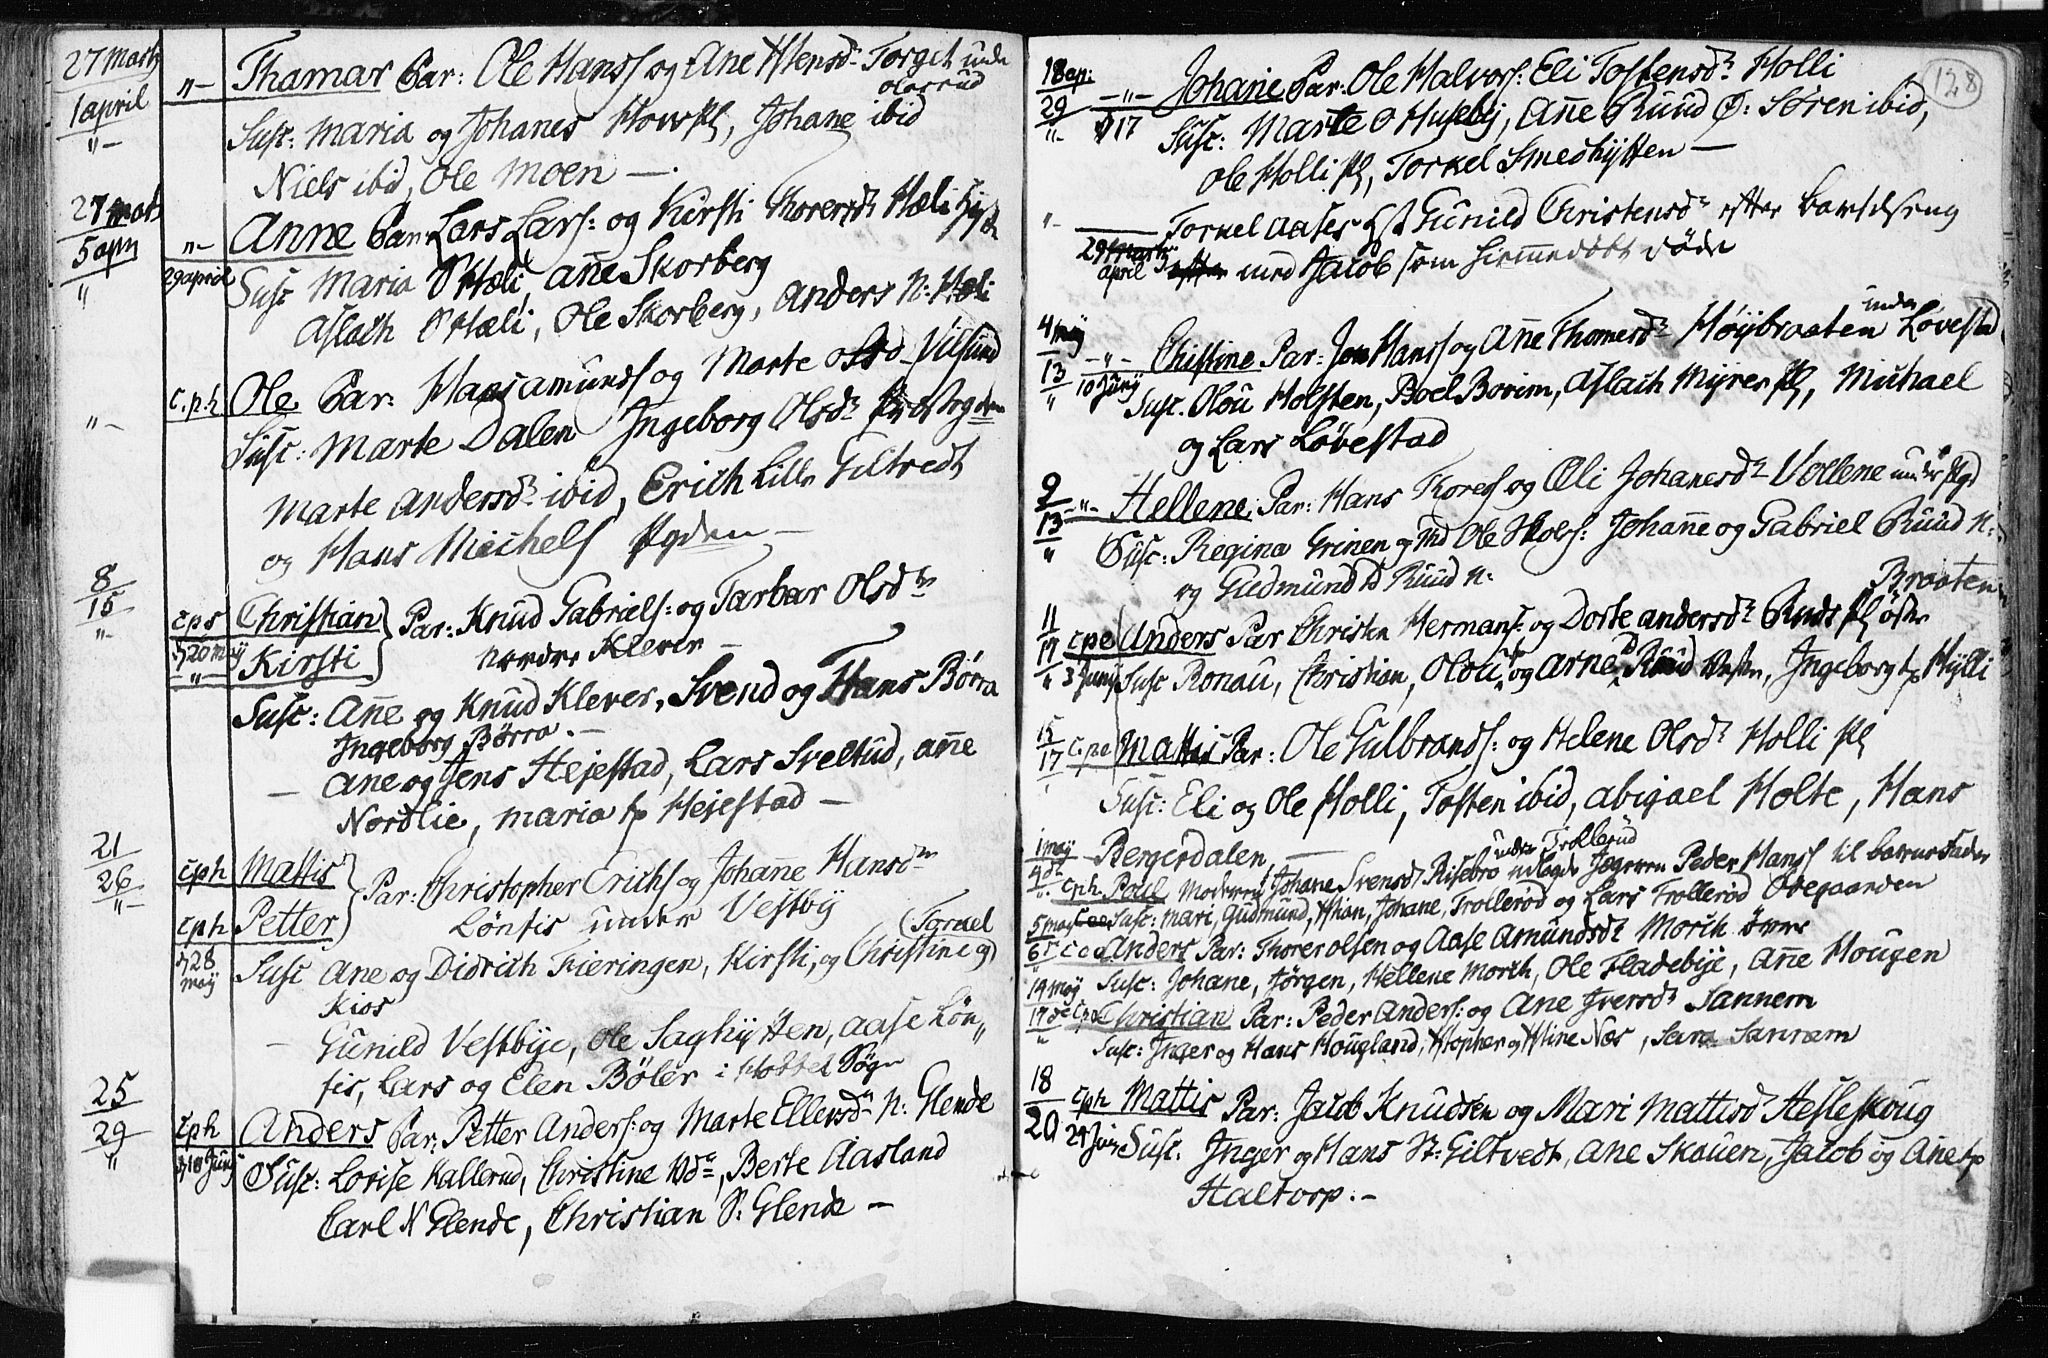 27 Marty
1 april
"-
"- Thamar Par: Ole Hanss og Ane Xtensd. Torget unde
olerud
Susc: Maria og Johanes Hovpl, Johane ibid
Niels ibid, Ole Moen —.
27 mart
5 apr
"
"- Anne Par: Lars Lars: og Kirsti Thoresd. Hæli
29 april Susc Maria S Hæli, Añe Skorberg
Aslach S Hæli, Ole Skorberg, Anders N: Hæli
"-
c.p.h Ole Par: Hans amunds og Marte olsd Vilsund
Susc: Marte Dalen Ingeborg Olsd.
Marte andersd. ibid, Erich Lille Giltvedt
og Hans Michels Pgden —
8
15
"-
cps Christian Par: Knud Gabriels: og Tarbar Olsd
20 may
"- Kirsti nordre Klever —
Susc: Añe og Knud Klever, Svend og Hans Børra
Ingeborg Børra. —
— Ane og Jens Hejestad, Lars Sveltud, añe
Nordlie, maria tp Hejestad —
21
26
"-
cph Mattis Par: Christopher Erichs og Johañe Hansd
cph Petter Løntis under Vestby
28 may Susc Ane og Didrich Fieringen, Kirsti, og Christine og
Kios
— Gunild Vestbye, Ole Saghytten, aase Løn"
tis, Lars og Elen Bøler i Sogn
25
29
"
cph Anders Par: Petter Anders: og Marte Ellersd. N: Glende
10 Juny Susc: Lovise Kallerud, Christine Berte Aasland
Carl N Glende, Christian S: Glende —
128
18 ap:
29
"-
—"— Johane Par: Ole Halvors: Eli Tostensd. Holli
17 Susc: Marte Huseby, Añe Ruud Ø: Søren ibid,
Ole Holli pl, Torkel Smedhytten —
"- Torkel Aases Gunild Christensd. efter barselseng
29 april med Jacob som hiemmedøbt døde
4 may
13
"
—"— Christine Par: Jon Hanss og Añe Thomesd. Høybraaten under Løvestad
10 Juny Susc. Olou Holsten, Boel Bovim, Aslach Myrer pl, Michael
og Lars Løvestad
9
13
"
-"- Hellene Par: Hans Thores og Eli Johanesd. Vollene under
Susc: Regina Grinen og Ole Johañe og Gabriel Ruud N:
og Gudmund Ruud N:
11
17
" cpe Anders Par Christen Hermans: og Dorte andersd. Ruds pl Braaten
3 Juny Susc Ronau, Christian, Olou og Arne Ruud Vesten, Ingeborg tp Hylli
15
17
cpe Mattis Par: Ole Gulbrands: og Helene Olsd. Holli pl
Susc: Eli og Ole Holli, Tosten ibid, abigael Holte, Hans
1 may
4de
"- — Bergerdalen —
under Trollerud
cph Poul Moderen Johane Svensd. Risebro udlagde Peder Hanss til barnefader
Susc: Mari, Gudmund, Xtian, Johane, Trollerød og Lars Trollerød Ødegaarden
5 may
6t Anders Par: Thorer olsen og Aase Amundsd. Morth
" Susc: Johane, Jørgen, Hellene Morth, Ole Fladebye, Añe Hougen
14 may
17de
"
Christian Par: Peder Anders: og Ane Iversd. Sannem
Susc: Inger og Hans Hougland, Xtopher og Xtine Næs, Sara Sannem
18
20
cph Mattis Par: Jacob Knudsen og Mari Mattisd. Hesleskoug
24 Juny Susc. Inger og Hans St: Giltvedt, Ane Skouen, Jacob og Ane tp
Haltorp. —